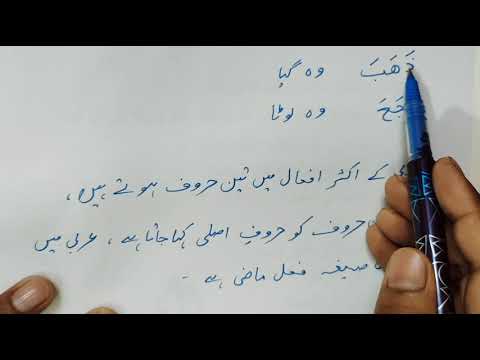 ذَهَبَ وہ گیا
جَعَ وہ لوٹا
کے اکثر افعال میں تین حروف ہوتے ہیں،
حروف کو حروفِ اصلی کہا جاتا ہے، عربی میں
صیغہ فعل ماضی ہے ۔